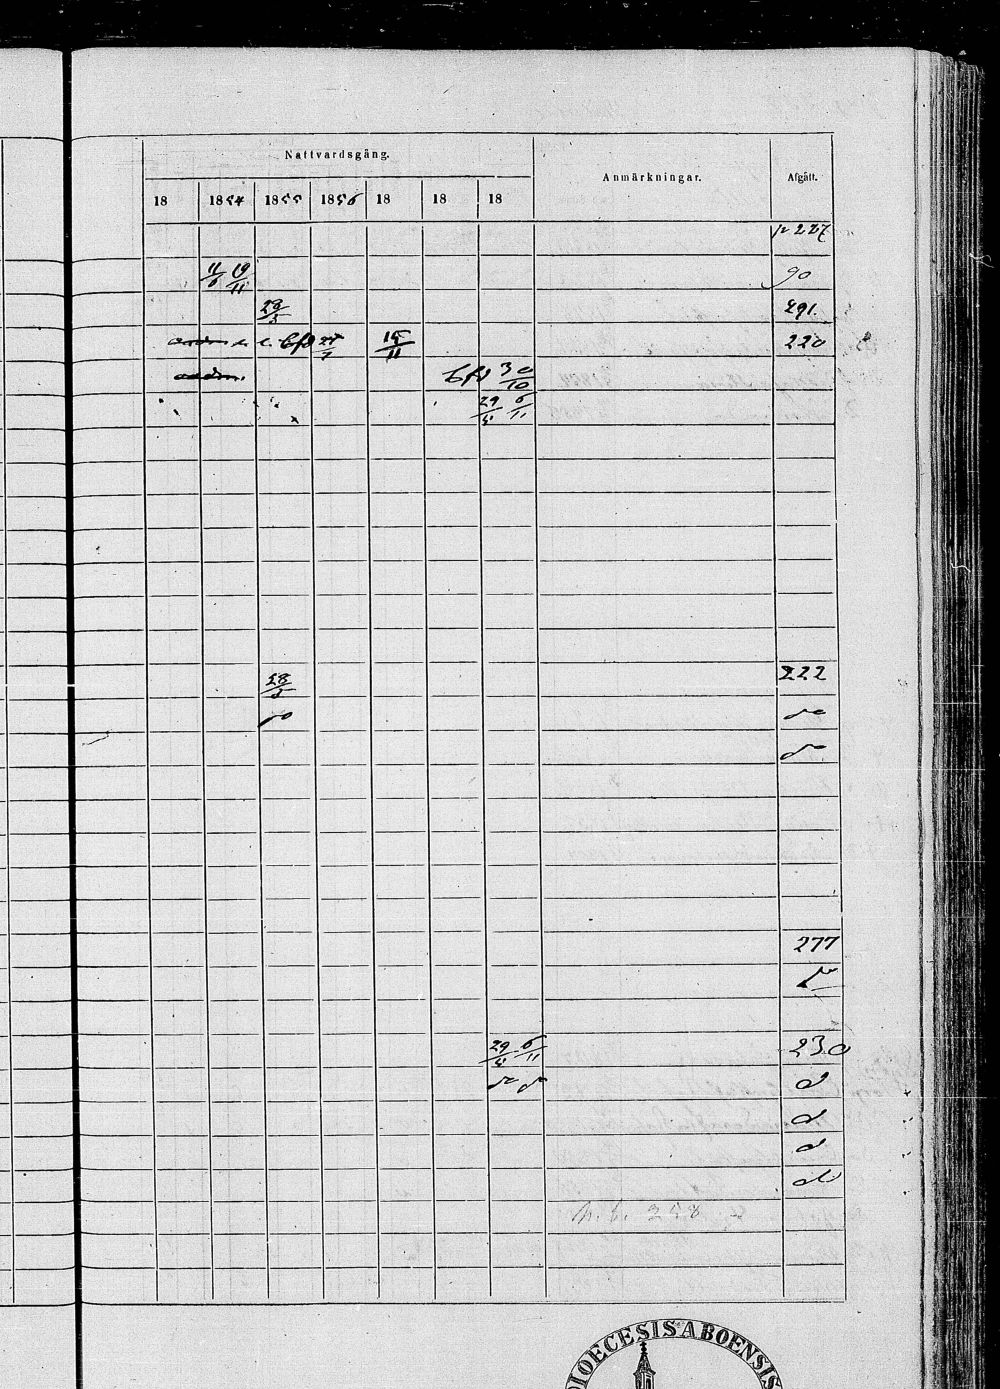 Nattvardsgång. Anmärkningar. Afgått.
18 1854 1855 1856 18 18 18
p 227
11/6 19/11 90
29/5 291.
bfd 15/11 220
bfd 30/10
29/4 6/11
28/5 222
do do
do
277
do
29/4 6/11 230
do do d
d
d
d
p. b. 258
DIOECESIS ABOENSIS